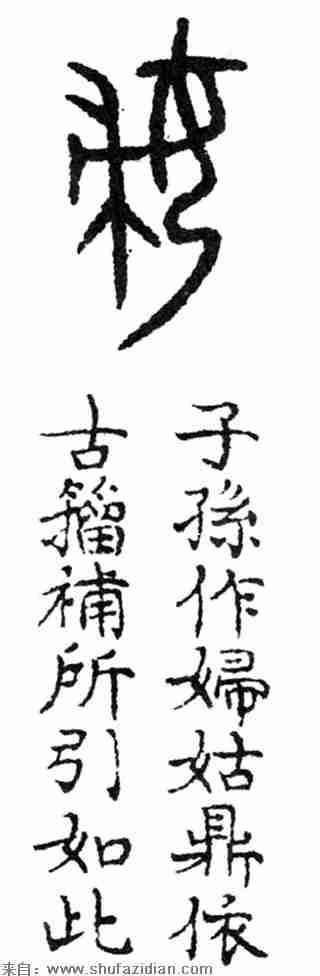 子孫作婦姑鼎依
古籀補所引如此
来自：www.shufazidian.com